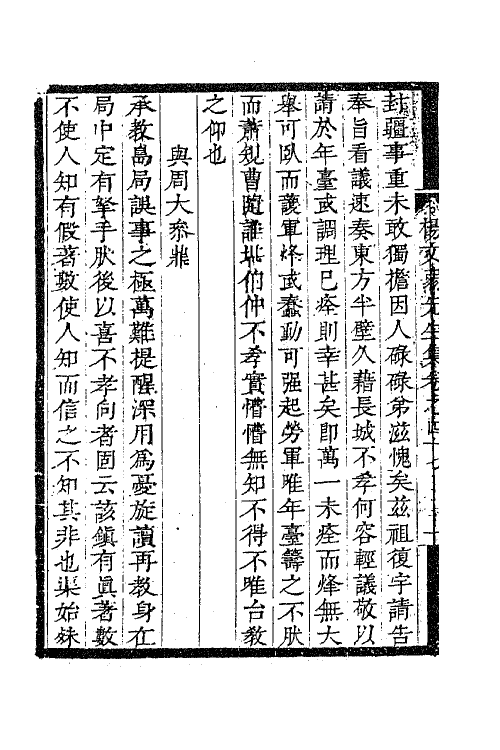 封疆事重未敢獨擔因人碌碌弟滋愧矣茲祖復宇請告
奉旨看議速奏東方半壁久藉長城不孝何容輕議敬以
請於年臺或調理已痊則幸甚矣即萬一未痊而烽無大
舉可臥而護軍烽或蠢動可强起勞軍唯年臺籌之不肰
而蕭規曹隨誰堪伯仲不孝實懵懵無知不得不唯台教
之仰也
與周大參鼎
承教島局誤事之極萬難提醒深用為憂旋讀再教身在
局中定有拏手肰後以喜不孝向者固云該鎮有眞著數
不使人知有假著數使人知而信之不知其非也渠始妹